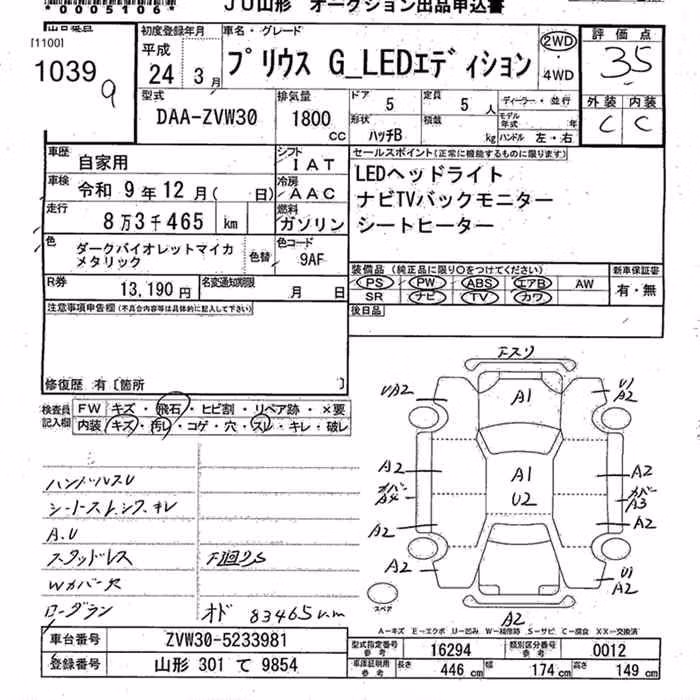 *0005106*
JU山形 オークション出品申込書
出品番号
[1100]
1039
9
初度登録年月
平成
24年3月
車名・グレード
プリウス G_LEDエディション
2WD
・
4WD
評価点
3.5
外装 内装
C C
型式
DAA-ZVW30
排気量
1800
CC
ドア 5
定員 5人
ディーラー・並行
形状 ハッチB
積載 kg
モデル年式 年
ハンドル 左・右
車歴 自家用
車検 令和 9年12月( 日)
走行 8万3千465 km
シフト IAT
冷房 AAC
燃料 ガソリン
セールスポイント(正常に機能するものに限ります)
LEDヘッドライト
ナビTVバックモニター
シートヒーター
色 ダークバイオレットマイカ
メタリック
色替
色コード
9AF
R券 13,190円
名変通知期限 月 日
装備品(純正品に限り○をつけてください)
PS PW ABS エアB AW
SR ナビ TV カワ
新車保証書
有・無
注意事項申告欄(不具合内容等は具体的に記入して下さい)
後日品
修復歴 有〔箇所 〕
検査員
記入欄
FW キズ・飛石・ヒビ割・リペア跡・×要
内装 キズ・汚し・コゲ・穴・スレ・キレ・破レ
ハンドルスリ
A.U
スタッドレス
下廻りS
Wカバー欠
オド 83465km
下スリ
A1
UA2
U1
A2
A2
A1
U2
A2
カバー
A4
カバー
A3
A2
A2
A2
U1
A2
A2
スペア
A－キズ E－エクボ U－凹み W－補修跡 S－サビ C－腐食 XX－交換済
車台番号 ZVW30-5233981
登録番号 山形 301 て 9854
型式指定番号
参考
16294
類別区分番号
参考
0012
車庫証明用
参考
長さ 446 cm 幅 174 cm 高さ 149 cm